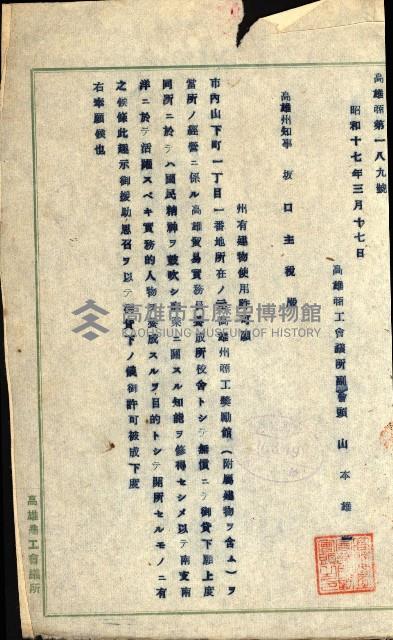 高雄商第一八九號
昭和十七年三月十七日
高雄商工會議所副會頭 山本雄一
高雄州知事 坂口主稅殿
州有建物使用許可願
市內山下町一丁目一番地所在ノ元高雄州商工獎勵館(附屬建物ヲ含ム)ヲ
當所ノ經營ニ係ル高雄貿易實務員養成所校舍トシテ無償ニテ御貸下願上度
同所ニ於テハ國民精神ヲ鼓吹シ商業ニ關スル知能ヲ修得セシメ以テ南支南
洋ニ於テ活躍スベキ實務的人物ヲ養成スルヲ目的トシテ開所セルモノニ有
之候條此趣示御援助思召ヲ以テ御貸下ノ儀御許可被成下度
右奉願候也
高雄商工會議所
高雄市立歷史博物館
KAOHSIUNG MUSEUM OF HISTORY